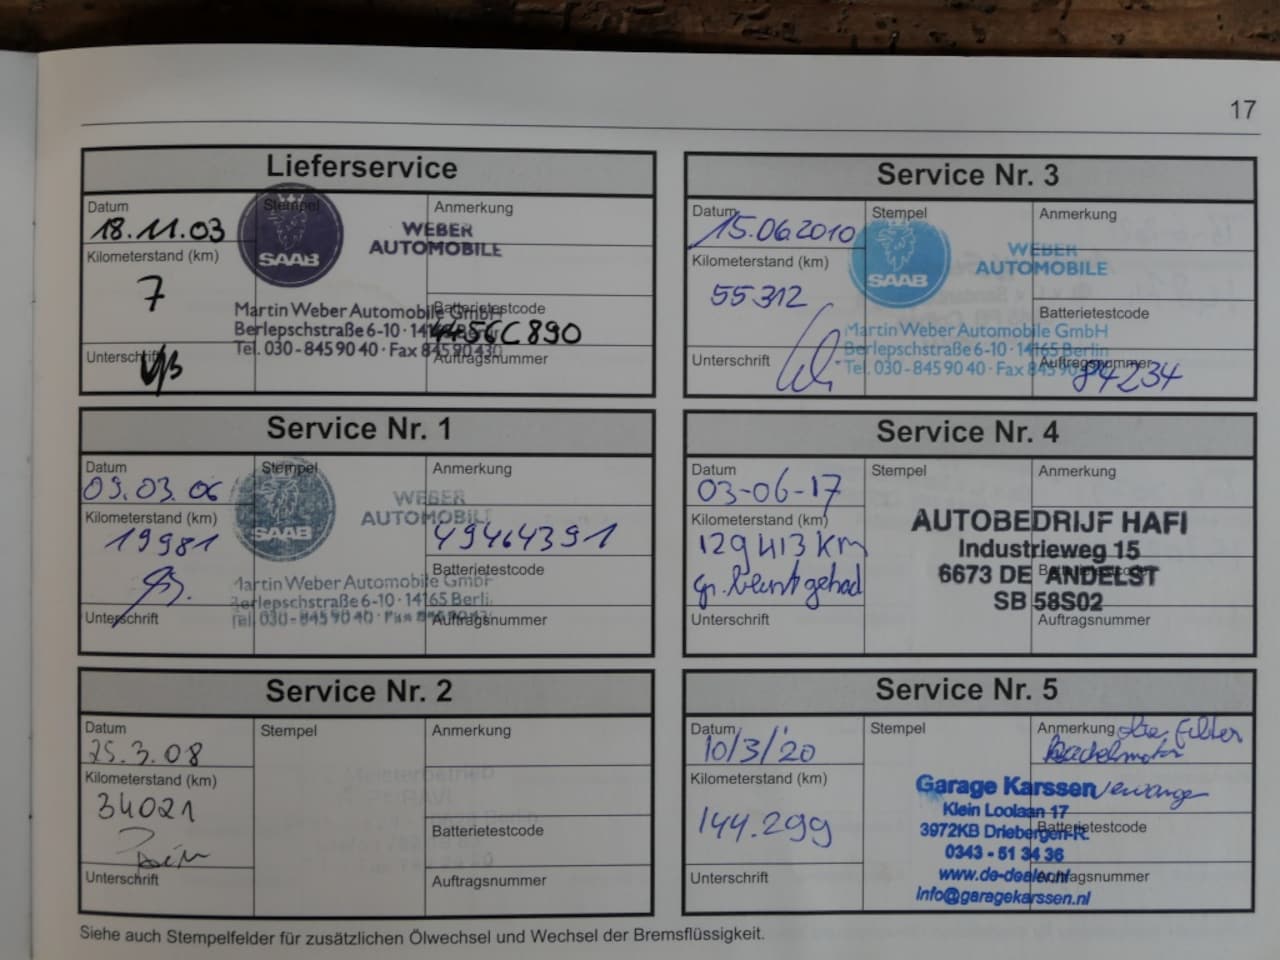 17
Lieferservice
Datum
18.11.03
Kilometerstand (km)
7
Unterschrift
Stempel
SAAB
WEBER
AUTOMOBILE
Martin Weber Automobile GmbH
Berlepschstraße 6-10 · 14165 Berlin
Tel. 030 - 845 90 40 · Fax 845 90 430
Anmerkung
Batterietestcode
4456C890
Auftragsnummer
Service Nr. 1
Datum
03.03.06
Kilometerstand (km)
19981
Unterschrift
Stempel
SAAB
WEBER
AUTOMOBILE
Martin Weber Automobile GmbH
Berlepschstraße 6-10 · 14165 Berlin
Tel. 030 - 845 90 40 · Fax 845 90 430
Anmerkung
49464391
Batterietestcode
Auftragsnummer
Service Nr. 2
Datum
25.3.08
Kilometerstand (km)
34021
Unterschrift
Stempel
Anmerkung
Batterietestcode
Auftragsnummer
Service Nr. 3
Datum
15.06.2010
Kilometerstand (km)
55312
Unterschrift
Stempel
SAAB
WEBER
AUTOMOBILE
Martin Weber Automobile GmbH
Berlepschstraße 6-10 · 14165 Berlin
Tel. 030 - 845 90 40 · Fax 845 90 430
Anmerkung
Batterietestcode
Auftragsnummer
84234
Service Nr. 4
Datum
03-06-17
Kilometerstand (km)
129413 km
gr. beurt gehad
Unterschrift
Stempel
AUTOBEDRIJF HAFI
Industrieweg 15
6673 DE ANDELST
SB 58S02
Anmerkung
Batterietestcode
Auftragsnummer
Service Nr. 5
Datum
10/3/'20
Kilometerstand (km)
144.299
Unterschrift
Stempel
Garage Karssen
Klein Loolaan 17
3972KB Driebergen-R.
0343 - 51 34 36
www.de-dealer.nl
info@garagekarssen.nl
Anmerkung
Filter
Batterietestcode
Auftragsnummer
Siehe auch Stempelfelder für zusätzlichen Ölwechsel und Wechsel der Bremsflüssigkeit.